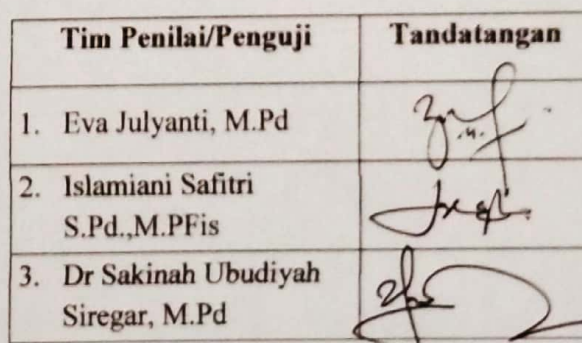 Tim Penilai/Penguji Tandatangan
1. Eva Julyanti, M.Pd
2. Islamiani Safitri
S.Pd.,M.PFis
3. Dr Sakinah Ubudiyah
Siregar, M.Pd